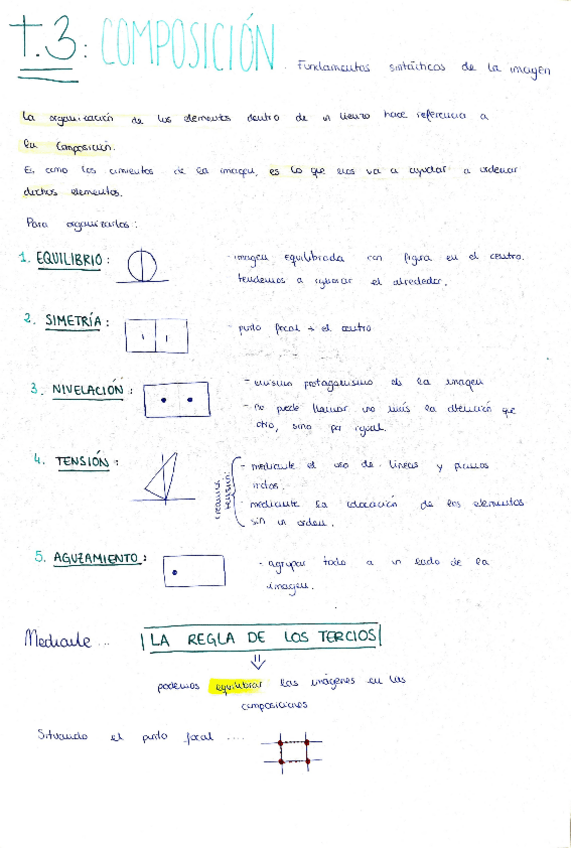 T.3: COMPOSICIÓN. Fundamentos sintácticos de la imagen
La organización de los elementos dentro de un lienzo hace referencia a
la composición.
Es como los cimientos de la imagen, es lo que nos va a ayudar a ordenar
dichos elementos.
Para organizarlos:
1. EQUILIBRIO:
- imagen equilibrada con figura en el centro.
tendemos a ignorar el alrededor.
2. SIMETRÍA:
- punto focal → el centro
3. NIVELACIÓN:
- mismo protagonismo de la imagen
- no puede llamar uno más la atención que
otro, sino por igual.
4. TENSIÓN:
creamos tensión:
- mediante el uso de líneas y planos
- mediante la colocación de los elementos
sin un orden.
5. AGUZAMIENTO:
- agrupar todo a un lado de la
imagen.
Mediante ... LA REGLA DE LOS TERCIOS
podemos equilibrar las imágenes en las
composiciones
Situando el punto focal ....